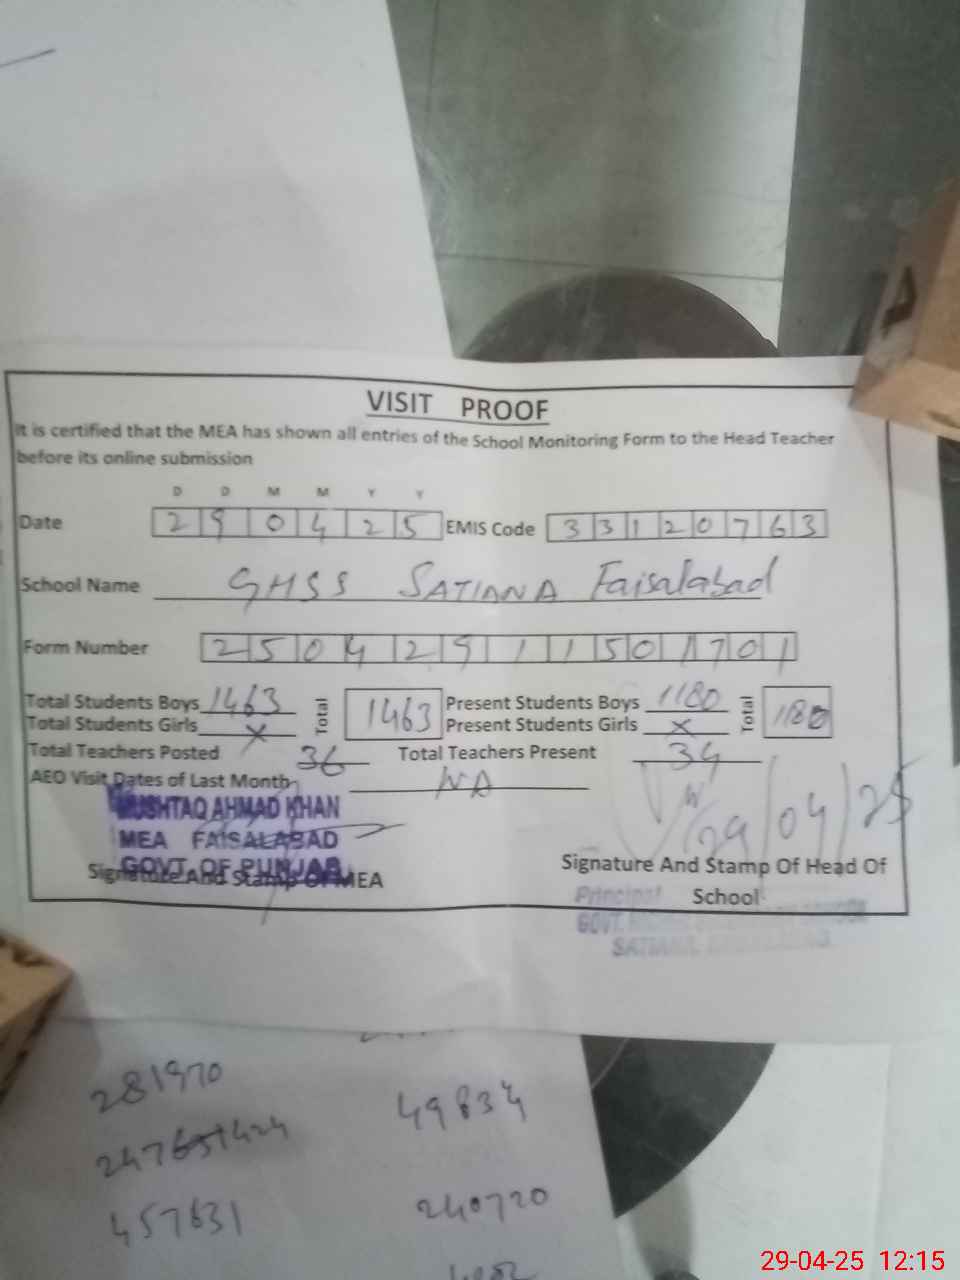 VISIT PROOF
It is certified that the MEA has shown all entries of the School Monitoring Form to the Head Teacher
before its online submission
D D M M Y Y
Date 290425 EMIS Code 33120763
School Name GHSS SATIANA Faisalabad
Form Number 25042911501701
Total Students Boys 1463 Total 1463 Present Students Boys 1180 Total 1180
Total Students Girls X Present Students Girls X
Total Teachers Posted 36 Total Teachers Present 34
AEO Visit Dates of Last Month NA
MUSHTAQ AHMAD KHAN
MEA FAISALABAD
GOVT. OF PUNJAB
29/04/25
Signature And Stamp Of MEA
Signature And Stamp Of Head Of
School
Principal
GOVT.
SATIANA
281970
49834
457631
240720
29-04-25 12:15